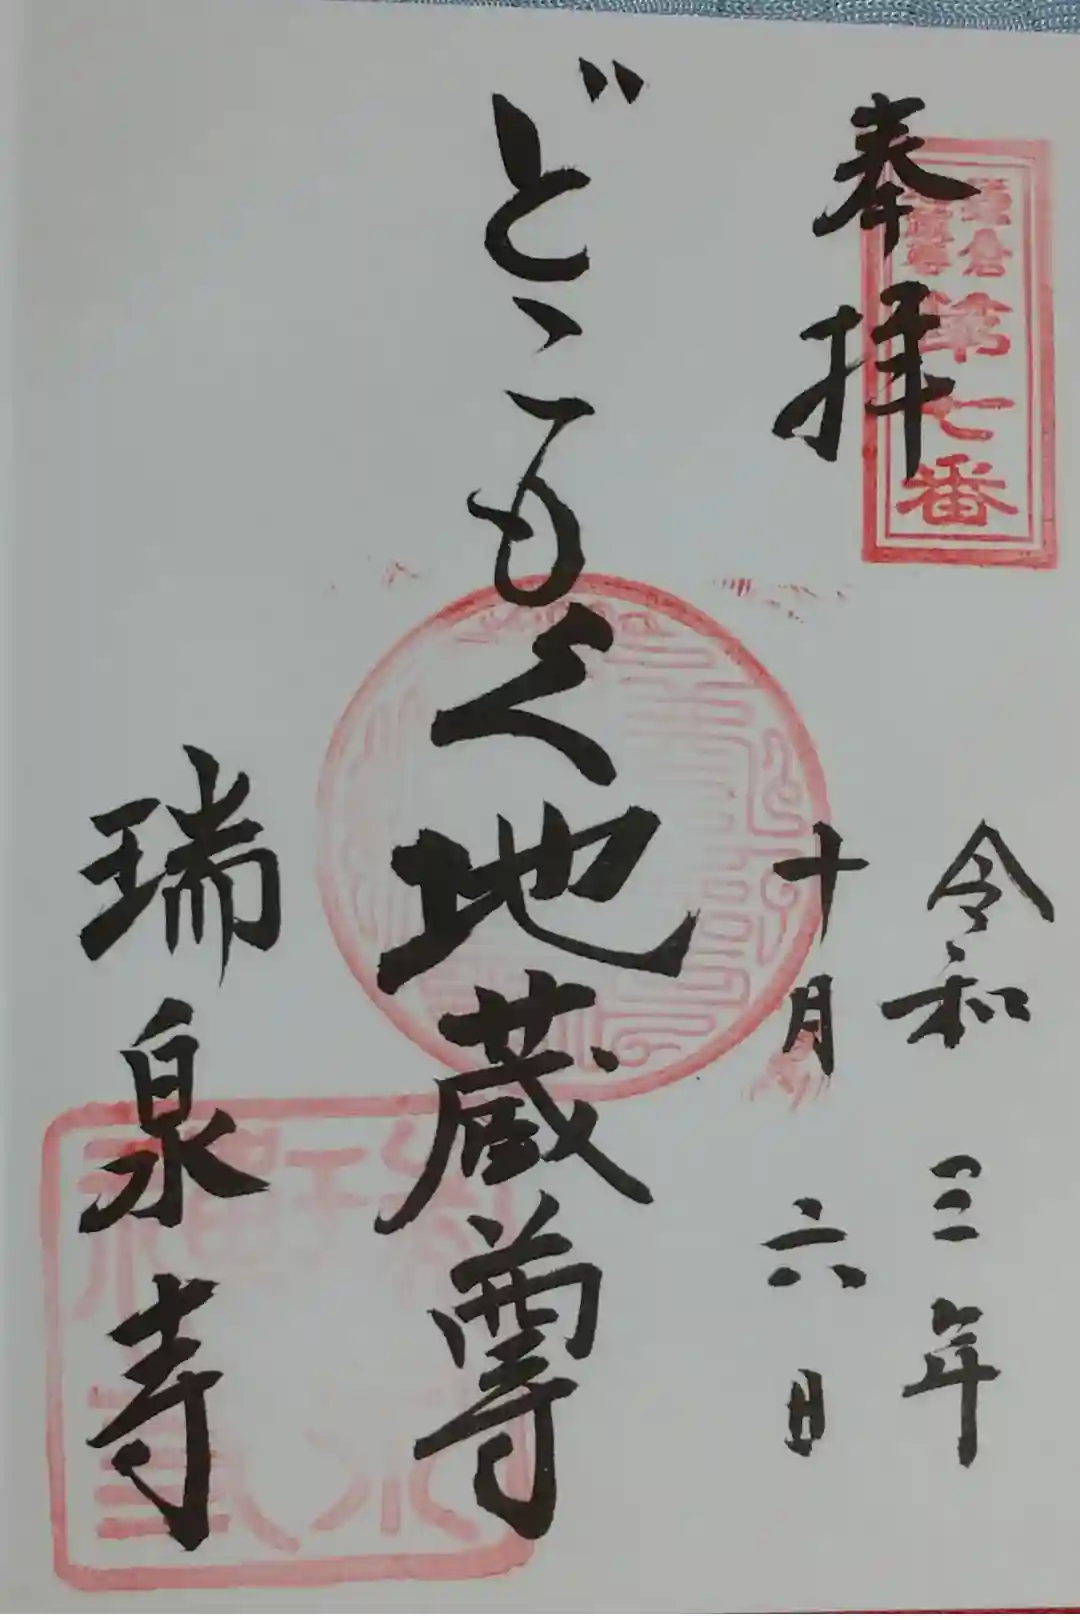 奉拝
鎌倉
地蔵尊
第七番
令和三年
十月六日
どこもく地蔵尊
瑞泉寺